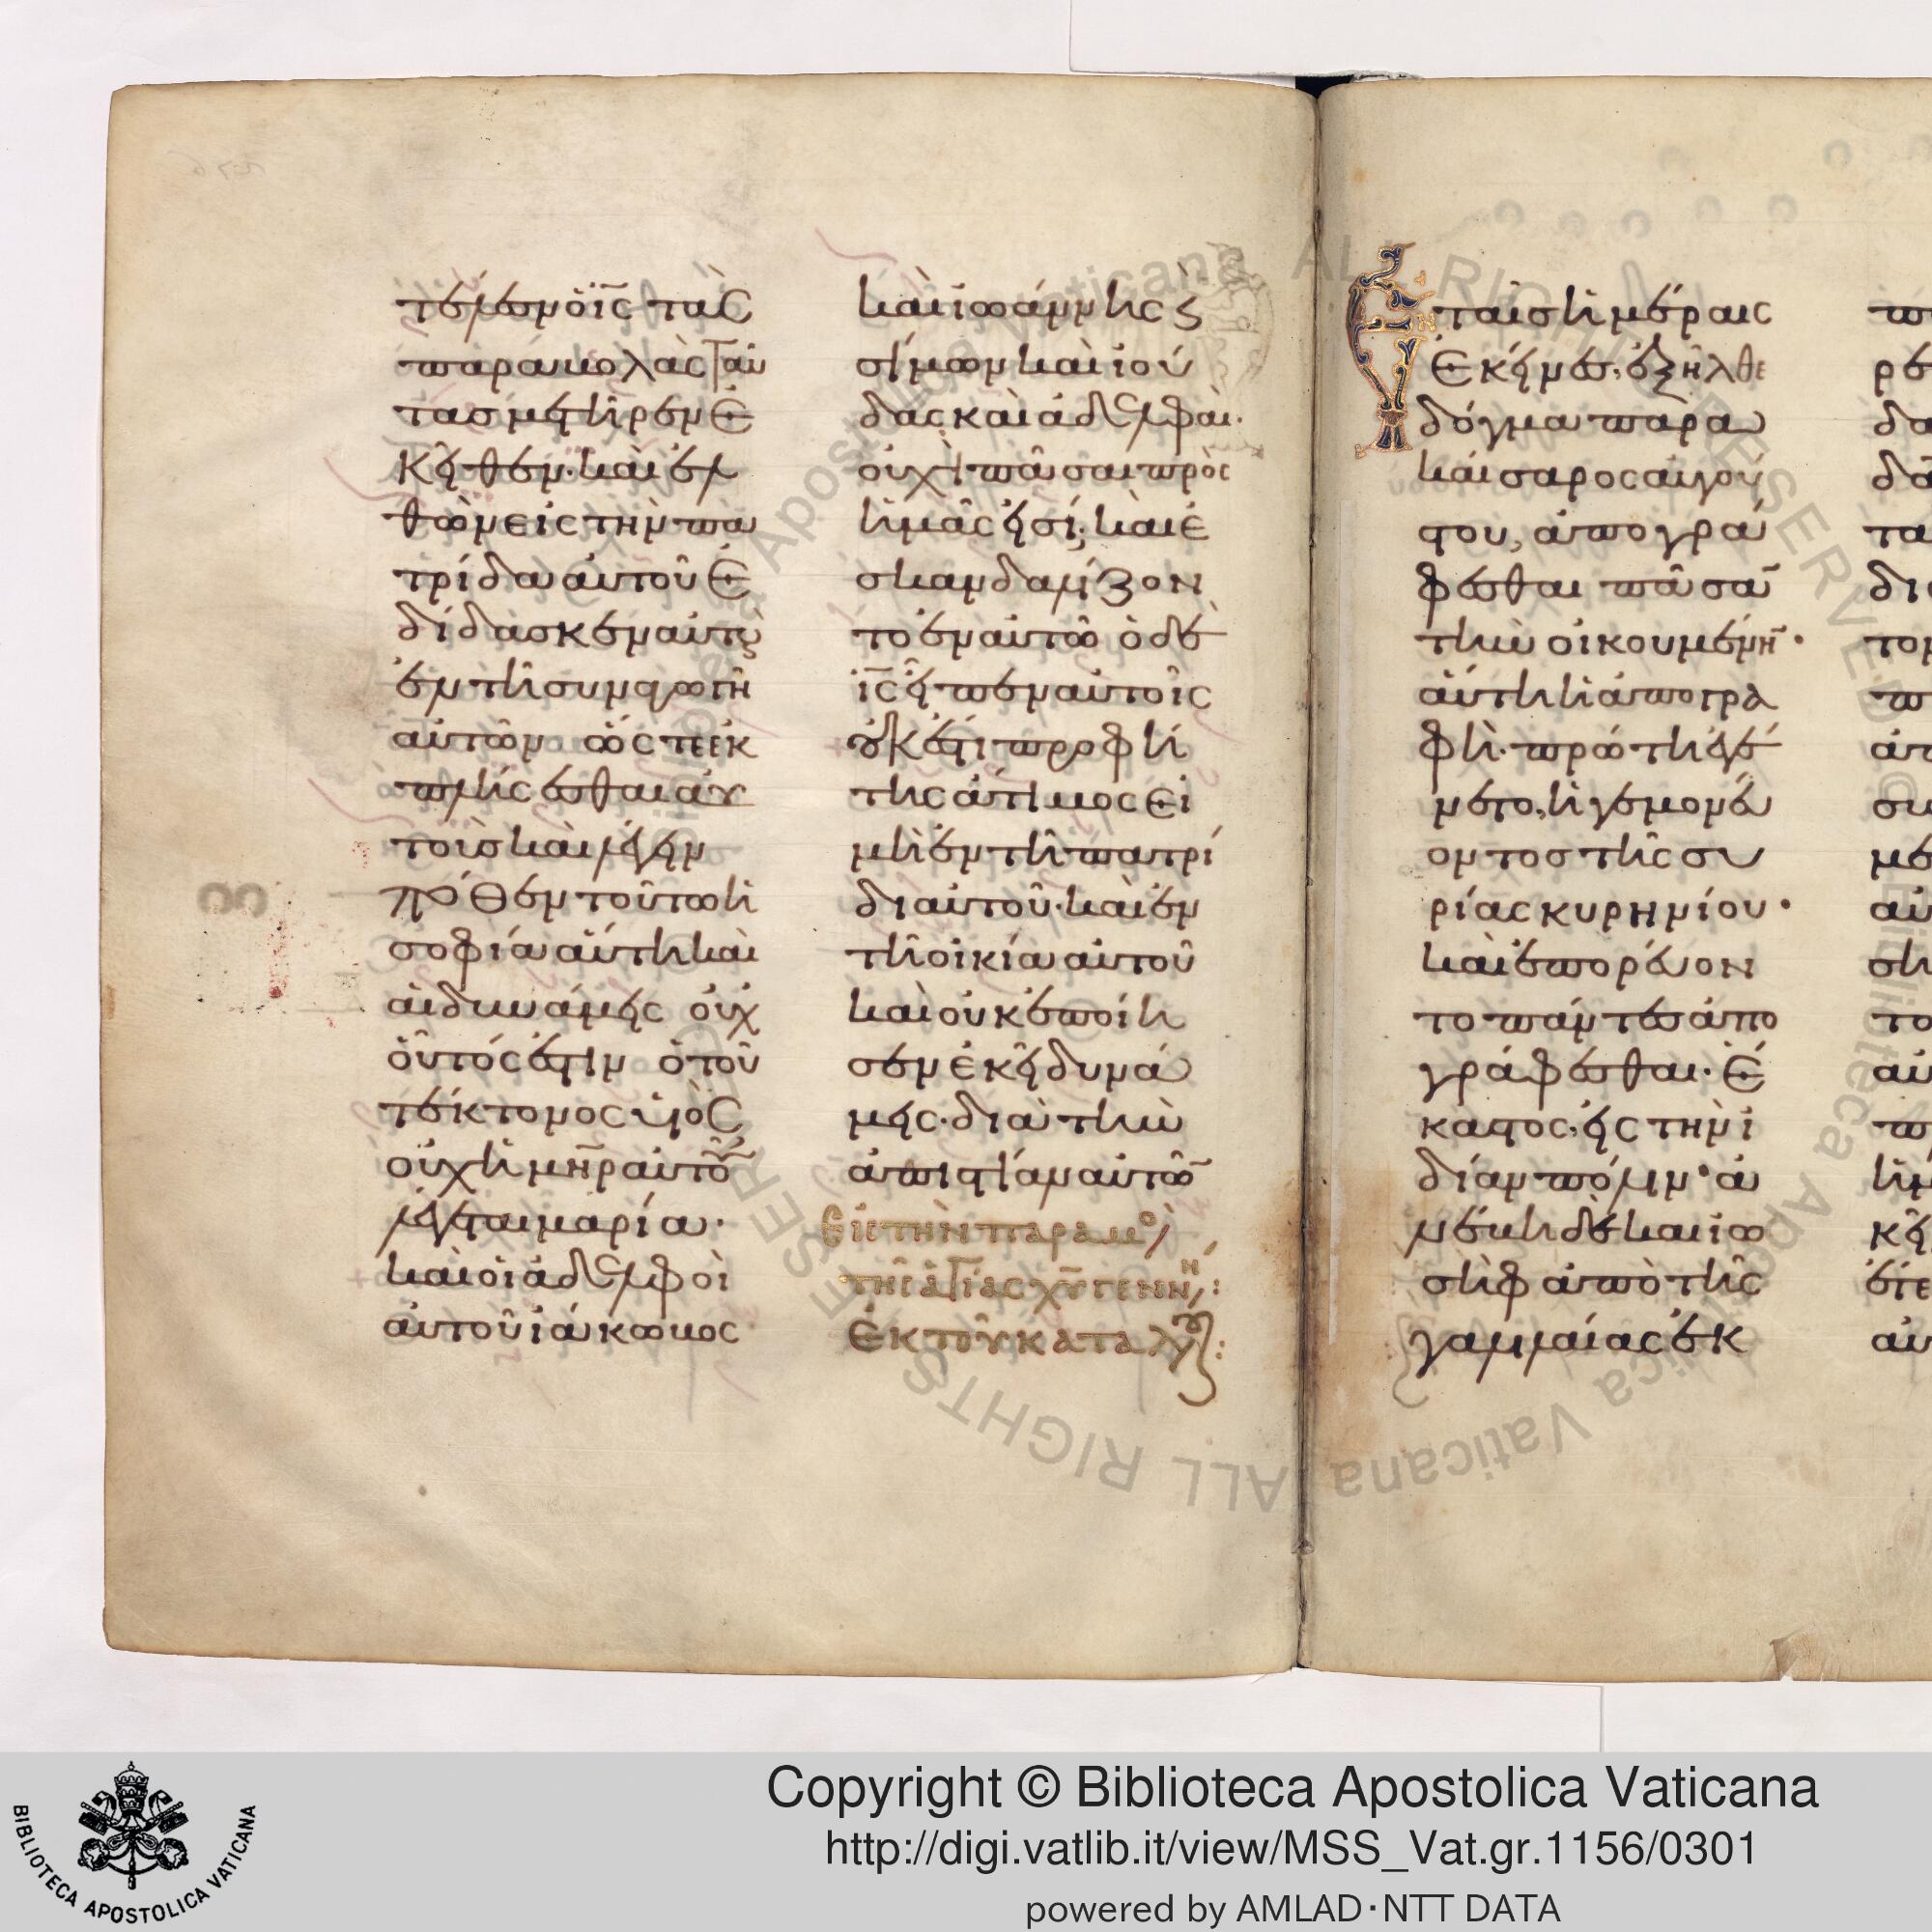 τέλεσεν ὁ ῑς̄ τὰς
παραβολὰς ταύ
τασ μετῆρεν ἐ
κεῖθεν. καὶ ἐλ
θὼν εἰς τὴν πα
τρίδα αὐτοῦ ἐ
δίδασκεν αὐτοὺς
ἐν τῆ συναγωγῆ
αὐτῶν ὥς τε ἐκ
πλήσσεσθαι αὐ
τοὺσ καὶ λέγειν
πόθεν τούτω ἡ
σοφία αὕτη καὶ
αἱ δυνάμεις οὐχ
οὗτός ἐστιν ὁ τοῦ
τέκτονος υἱὸς
οὐχ ἡ μη̄ρ αὐτοῦ
λέγεται μαρία.
καὶ οἱ ἀδελφοὶ
αὐτοῦ ἰάκωβος
καὶ ἰωάννης ϛ
σίμων καὶ ἰού
δας καὶ αἱ ἀδελφαὶ.
οὐχὶ πᾶσαι πρὸς
ἡμᾶς εἰσί; καὶ ἐ
σκανδαλίζον
το ἐν αὐτῶ ὁ δὲ
ῑς̄ εἶπεν αὐτοῖς
οὐκ ἔστι προφή
της ἄτιμος εἰ
μὴ ἐν τῆ πατρί
δι αὐτοῦ. καὶ ἐν
τῆ οἰκία αὐτοῦ
καὶ οὐκ ἐποίη
σεν ἐκεῖ δυνά
μεις. διὰ τὴν
ἀπιστίαν αὐτῶν
Εἰς τὴν παραμο
τῆς ἁγίας χ̄υ γενν:
Ἐκ τοῦ κατὰ λου:
Εν ταῖσ ἡμέραις
ἐκείναις, ἐξῆλθε
δόγμα παρὰ
καίσαρος αὐγού
στου, ἀπογρά
φεσθαι πᾶσαν
τὴν οἰκουμένην.
αὕτη ἡ ἀπογρα
φὴ. πρώτη ἐγέ
νετο, ἡγεμονεύ
οντος τῆς συ
ρίας κυρηνίου.
καὶ ἐπορεύον
το πάντες ἀπο
γράφεσθαι. ἕ
καστος, εἰς τὴν ἰ
δίαν πόλιν. ἀ
νέβη δὲ καὶ ἰω
σὴφ ἀπὸ τῆς
γαλιλαίας ἐκ
Copyright © Biblioteca Apostolica Vaticana
http://digi.vatlib.it/view/MSS_Vat.gr.1156/0301
powered by AMLAD·NTT DATA
BIBLIOTECA APOSTOLICA VATICANA